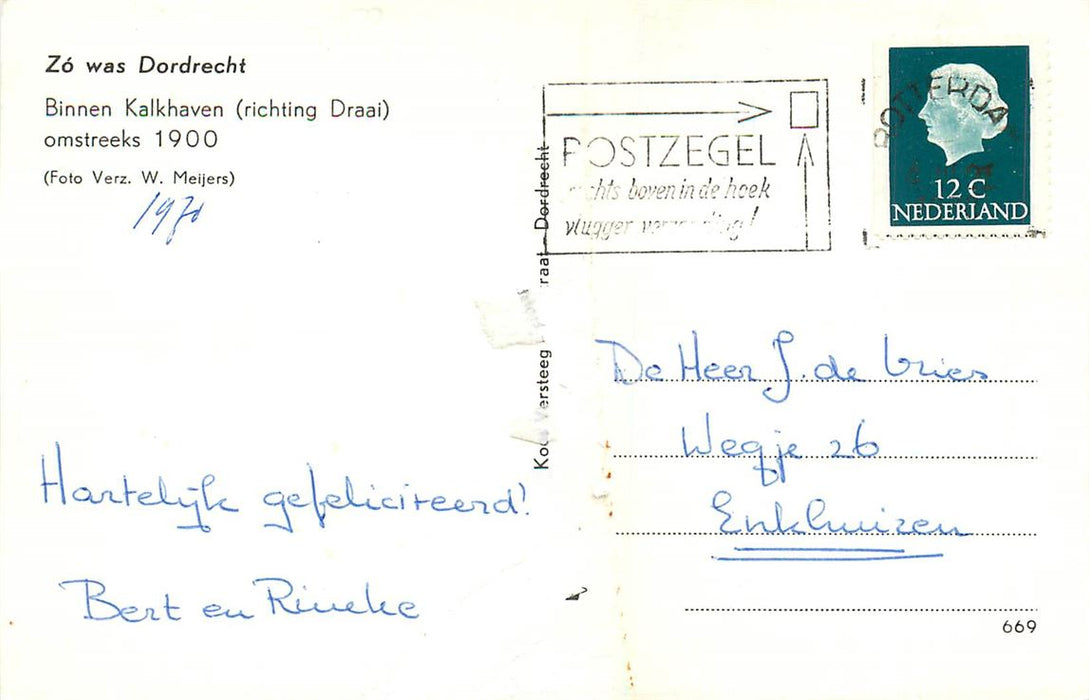 Zó was Dordrecht
Binnen Kalkhaven (richting Draai)
omstreeks 1900
(Foto Verz. W. Meijers)
1970
POSTZEGEL
rechts boven in de hoek
vlugger verzending!
ROTTERDA
12 C
NEDERLAND
Versteeg
raat - Dordrecht
De Heer J. de Vries
Wegje 26
Enkhuizen
Hartelijk gefeliciteerd!
Bert en Rineke
669